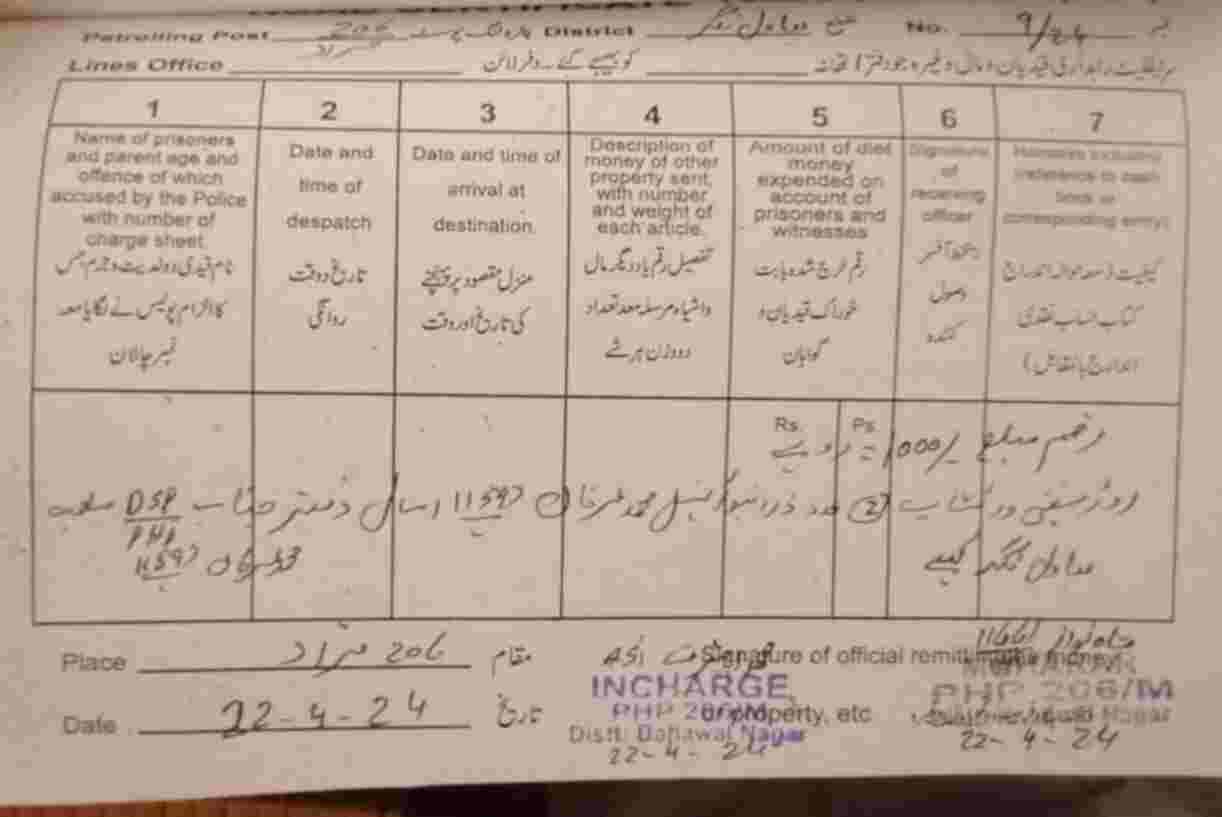 Patrolling Post 206 District ضلع بہاولنگر No. 9/24
مراد
Lines Office کو بھیجے گئے۔ دفتر لائن
1 2 3 4 5 6 7
Name of prisoners and parent age and offence of which accused by the Police with number of charge sheet.
Date and time of despatch
Date and time of arrival at destination.
Description of money of other property sent, with number and weight of each article.
Amount of diet money expended on account of prisoners and witnesses
Signature of receiving officer
(reference to cash book or corresponding entry)
نام قیدی و ولدیت و جرم جس کا الزام پولیس نے لگایا معہ نمبر چالان
تاریخ و وقت روانگی
منزل مقصود پر پہنچنے کی تاریخ اور وقت
تفصیل رقم یا دیگر مال و اشیاء مرسلہ معہ تعداد و وزن ہر شے
رقم خرچ شدہ بابت خوراک قیدیان و گواہان
دستخط آفسر وصول کنندہ
کیفیت معہ حوالہ اندراج کتاب حساب نقدی
Rs. Ps.
رقم مبلغ 1000/= روپے
روڈ سیفٹی ورکشاپ 2 عدد ڈرائیور کنسٹیبل محمد عرفان 1159 ارسال دفتر جناب DSP/PHP صاحب
بہاول نگر کیے
Place 206 مراد مقام
Date 22-4-24 تاریخ
Signature of official remitting the money
or property, etc
ASI
INCHARGE
PHP 206/M
Distt: Bahawal Nagar
22-4-24
MUHARRAR
PHP 206/M
22-4-24